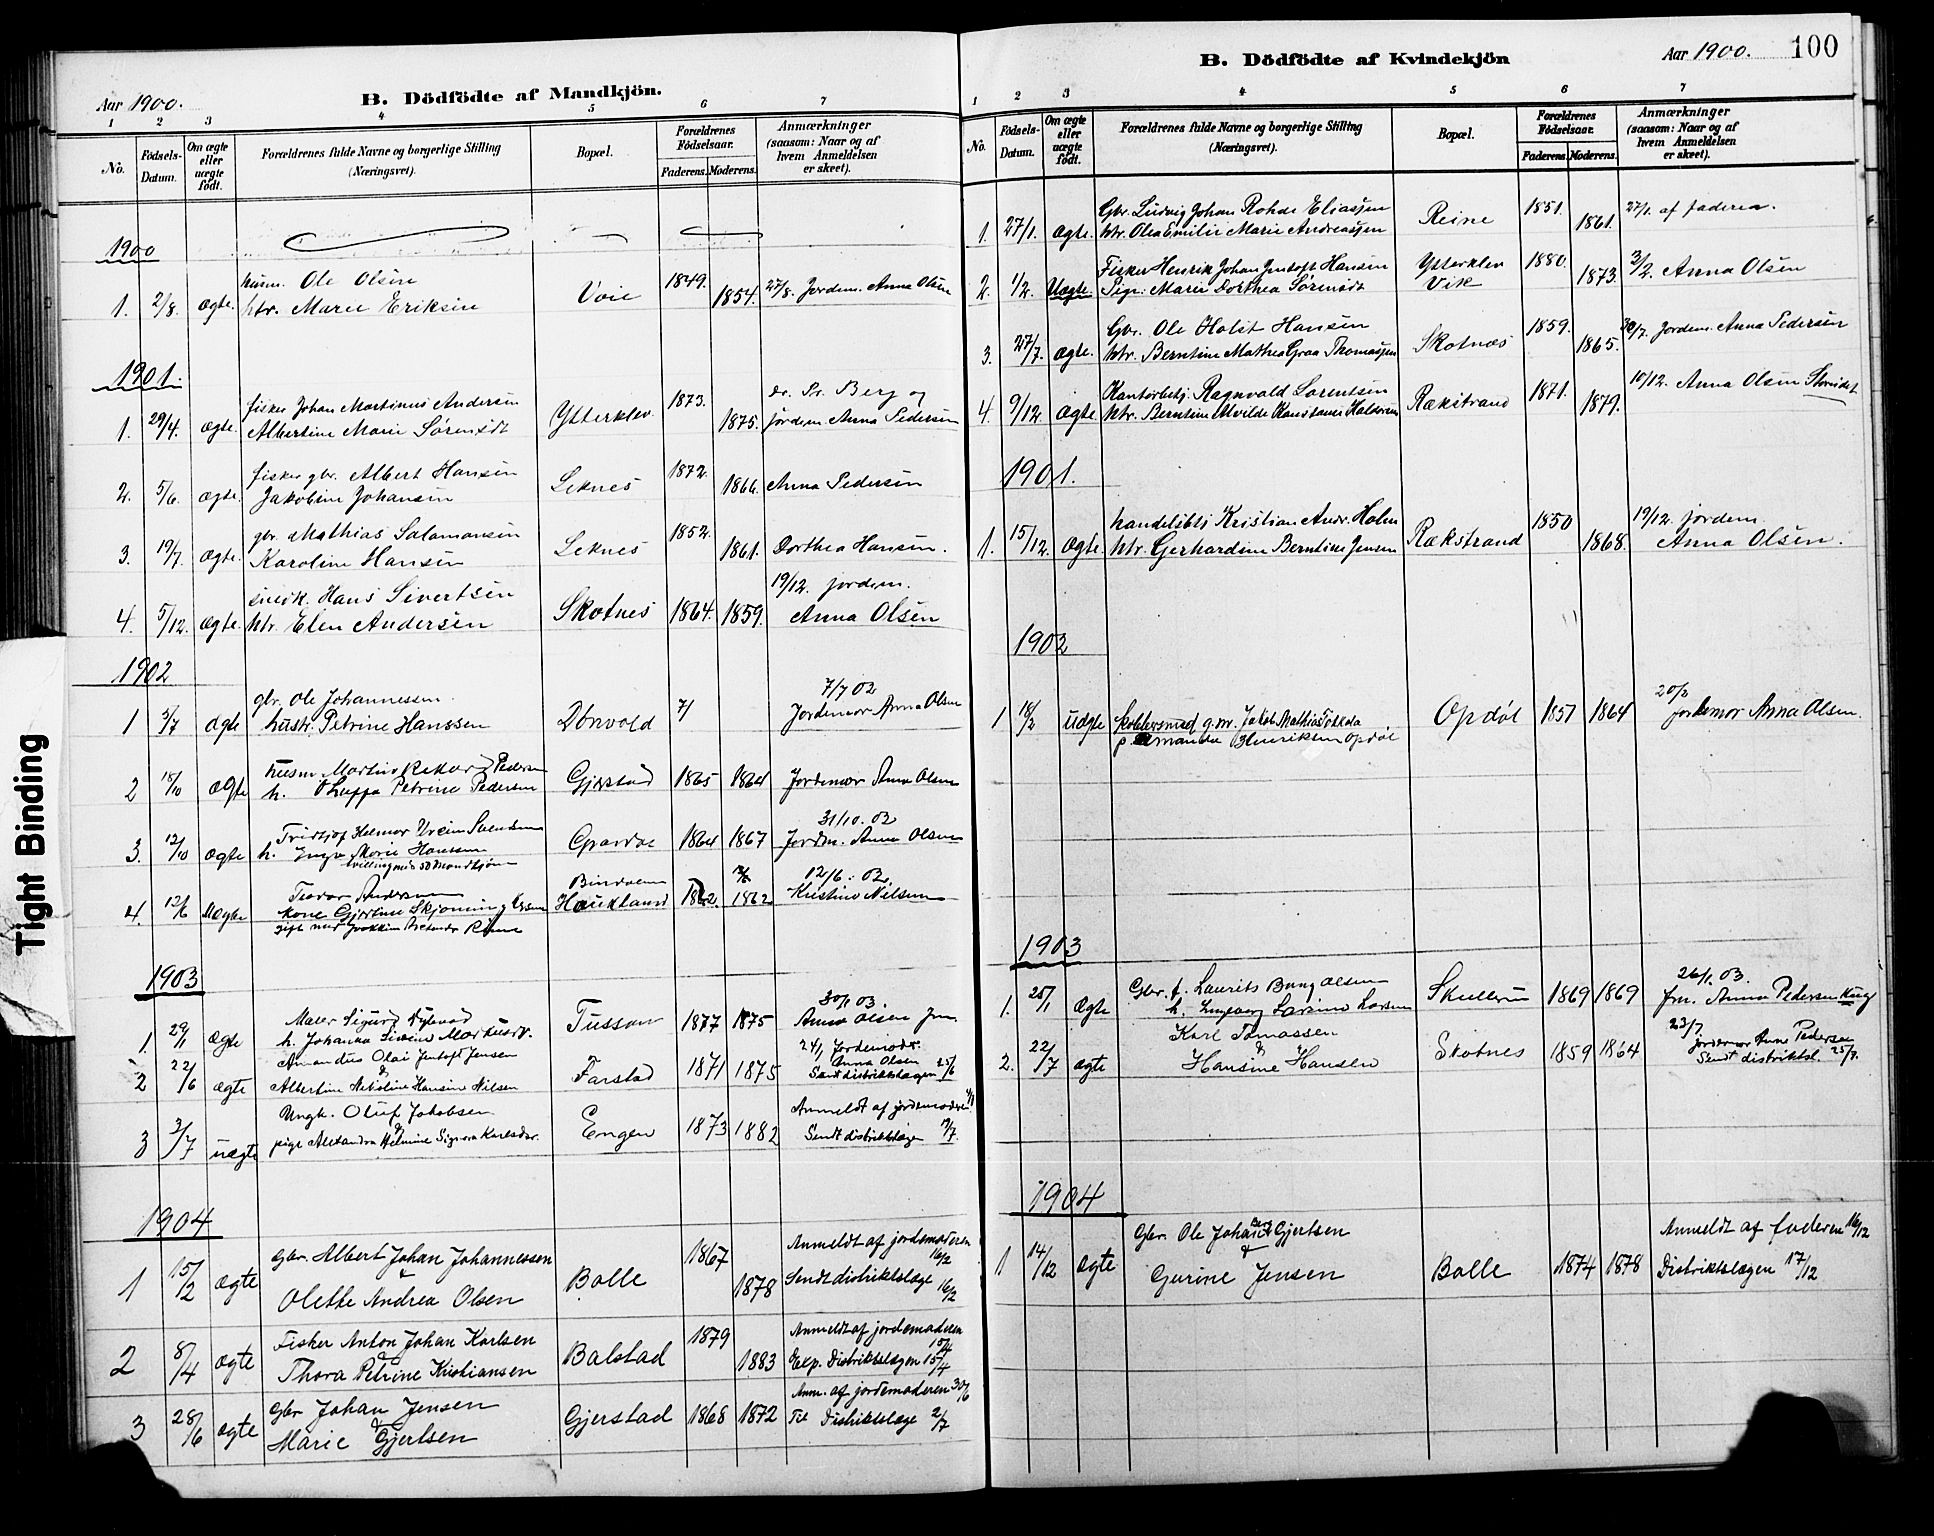 Tight Binding
Aar 1900.
B. Dödfödte af Mandkjön.
1 2 3 4 5 6 7
No.
Födsels-Datum.
Om ægte eller uægte födt.
Forældrenes fulde Navne og borgerlige Stilling (Næringsvei).
Bopæl.
Forældrenes Födselsaar.
Faderens. Moderens.
Anmærkninger (saasom: Naar og af hvem Anmeldelsen er skeet).
1900
husm. Ole Olsen
1. 2/8. ægte. htr. Marie Eriksen Voie 1849. 1854. 27/8. Jordem. Anna Olsen
1901.
fisker Johan Martinus Andersen
1. 29/4. ægte. Albertine Marie Sørensdt Ytterklev 1873. 1875. Berg og jordem. Anna Pedersen
fisker gbr. Albert Hansen
2. 5/6. ægte. Jakobine Johansen Leknes 1872. 1866. Anna Pedersen
gbr. Mathias Salamonsen
3. 19/7. ægte. Karoline Hansen Leknes 1852. 1861. Dorthea Hansen.
Hans Sivertsen 19/12. jordem.
4. 5/12. ægte. htr. Elen Andersen Skotnes 1864. 1859. Anna Olsen
1902
gbr. Ole Johannessen 7/7 02
1 5/7 ægte hustr. Petrine Hanssen 71 Jordemor Anna Olsen
husm Martin Rikard Pedersen
2 18/10 ægte h. Petrine Pedersen Gjerstad 1865 1864 Jordemor Anna Olsen
Fridtjof Helmer Svendsen 31/10.02
3. 12/10 ægte h. Inga Marie Hanssen 1864 1867 Jordm. Anna Olsen
Andersen 12/6. 02.
4. 12/6 Uægte kone Gjertine Haukland 1862. 1862 Kristine Nilsen
gift med
1903
Maler Sigurd 30/1 03.
1. 29/1 ægte h. Johanna Tussan 1877 1875 Anna Olsen Jm.
Amandus Olai Jentoft Jensen 24/1 Jordemoder
&
2 22/6 ægte Albertine Nikoline Hansine Nilsen Farstad 1871 1875 Anna Olsen
Sendt distriktslægen 25/6
Ungk. Oluf Jakobsen Anmeldt af jordemoderen
&
3 3/7 uægte pige Alexandra Helmine Signora Karlsdtr. Engen 1873 1882 Sendt distriktslægen 9/7.
1904
Gbr. Albert Johan Johannessen 1867 Anmeldt af jordemoderen 16/2
&
1 15/2 ægte Olette Andrea Olsen Bolle 1878 Sendt distriktslæge 16/2
Fisker Anton Johan Karlsen 1879 Anmeldt af jordemoderen 15/4
&
2 8/4 ægte Thora Petrine Kristiansen Balstad 1883 Exp. Distriktslægen 15/4
Gbr Johan Jensen Anm. af jordemoderen 30/6
&
3 28/6 ægte Marie Gjertsen Gjerstad 1868 1872 Til Distriktslæge 2/7
B. Dödfödte af Kvindekjön
Aar 1900. 100
1 2 3 4 5 6 7
No.
Födsels-Datum.
Om ægte eller uægte födt.
Forældrenes fulde Navne og borgerlige Stilling (Næringsvei).
Bopæl.
Forældrenes Födselsaar.
Faderens. Moderens.
Anmærkninger (saasom: Naar og af hvem Anmeldelsen er skeet).
Gbr. Ludvig Johan Rohde Eliassen
1. 27/1. ægte. htr. Olea Emilie Marie Andreassen Reine 1851. 1861. 27/1. af faderen.
Fisker Henrik Johan Jentoft Hansen Ytterklev
2. 1/2. Uægte. Pige: Marie Dorthea Sørensdt Vik 1880. 1873. 3/2. Anna Olsen
Gbr. Ole Holst Hansen
3. 27/7. ægte. htr. Berntine Mathea Graa Thomassen Skotnæs 1859. 1865. 30/7. Jordem. Anna Pedersen
Kontorbetj. Ragnvald Lorentsen
4. 9/12. ægte. htr. Berntine Alvilde Konstanse Rækstrand 1871. 1879. 10/12. Anna Olsen
1901.
handelsbtj Kristian Andr. Holm 19/12. jordem
1. 15/12. ægte htr. Gerhardine Berntine Jensen Rækstrand 1850 1868. Anna Olsen.
1902
1 18/2 uægte g.m. Jakob Mathias Opdøl 1857 1864 20/2 jordemor Anna Olsen.
p. Amanda Henriksen Opdøl
1903
Gbr. f. Laurits Bang Olsen 26/1.03.
1. 25/1 Ægte h. Ingeborg Larsine Larsen 1869 1869 Jm. Anna Pedersen
Karl Tomassen 23/7
&
2. 22/7 ægte Hansine Hansen Skotnes 1859 1864 jordemor Anne Pedersen
Sendt distriktsl. 25/7.
1904
Gbr. Ole Johan Berg Gjertsen Anmeldt af faderen 16/12
&
1 14/12 ægte Gurine Jensen Bolle 1874 1878 Distriktslægen 17/12